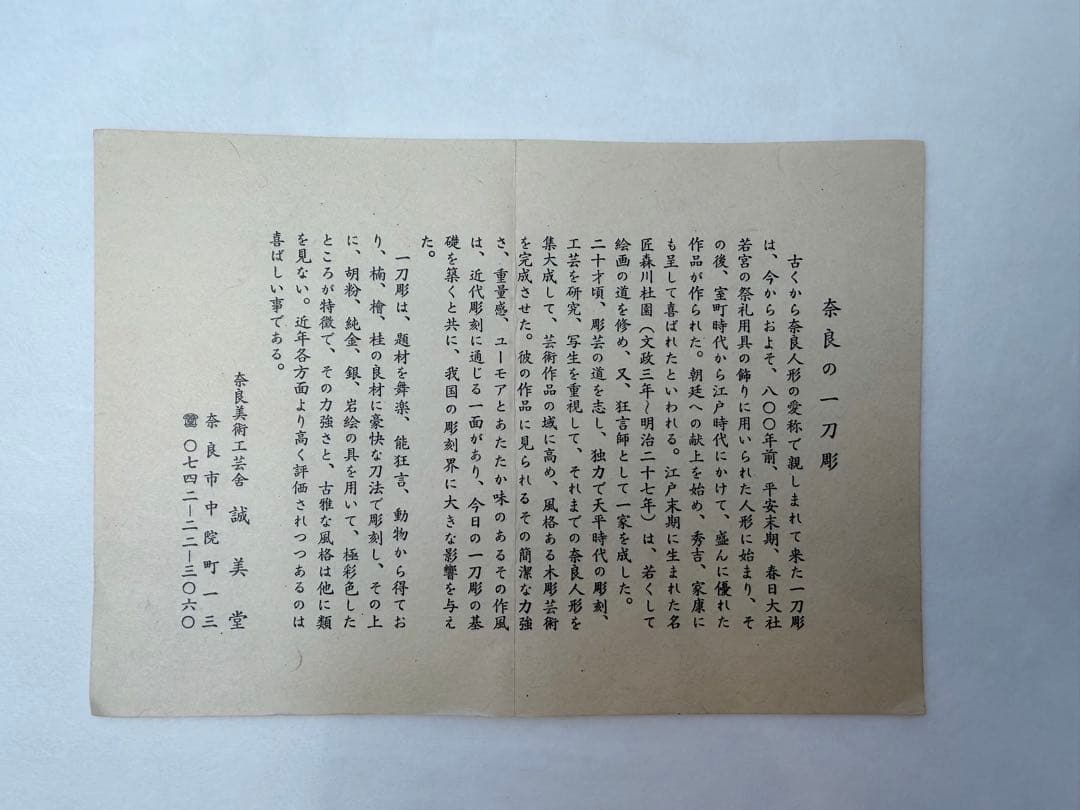 奈良の一刀彫
古くから奈良人形の愛称で親しまれて来た一刀彫
は、今からおよそ、八〇〇年前、平安末期、春日大社
若宮の祭礼用具の飾りに用いられた人形に始まり、そ
の後、室町時代から江戸時代にかけて、盛んに優れた
作品が作られた。朝廷への献上を始め、秀吉、家康に
も呈して喜ばれたといわれる。江戸末期に生まれた名
匠森川杜園(文政三年~明治二十七年)は、若くして
絵画の道を修め、又、狂言師として一家を成した。
二十才頃、彫芸の道を志し、独力で天平時代の彫刻、
工芸を研究、写生を重視して、それまでの奈良人形を
集大成して、芸術作品の域に高め、風格ある木彫芸術
を完成させた。彼の作品に見られるその簡潔な力強
さ、重量感、ユーモアとあたたか味のあるその作風
は、近代彫刻に通じる一面があり、今日の一刀彫の基
礎を築くと共に、我国の彫刻界に大きな影響を与え
た。
一刀彫は、題材を舞楽、能狂言、動物から得てお
り、楠、檜、桂の良材に豪快な刀法で彫刻し、その上
に、胡粉、純金、銀、岩絵の具を用いて、極彩色した
ところが特徴で、その力強さと、古雅な風格は他に類
を見ない。近年各方面より高く評価されつつあるのは
喜ばしい事である。
奈良美術工芸舎 誠美堂
奈良市中院町一三
☎〇七四二―二二―三〇六〇